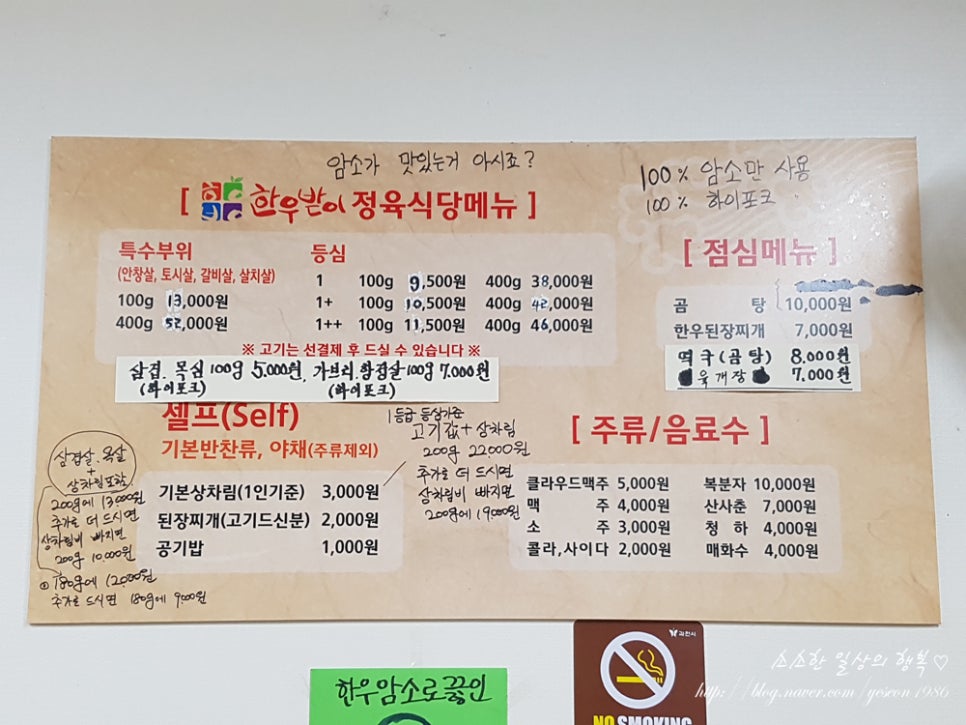 암소가 맛있는거 아시죠?
100% 암소만 사용
100% 하이포크
[ 한우받이 정육식당메뉴 ]
특수부위
(안창살, 토시살, 갈비살, 살치살)
100g 13,000원
400g 52,000원
등심
1 100g 9,500원 400g 38,000원
1+ 100g 10,500원 400g 42,000원
1++ 100g 11,500원 400g 46,000원
※ 고기는 선결제 후 드실 수 있습니다 ※
삼겹. 목심 100g 5.000원, 가브리.항정살 100g 7.000원
(하이포크) (하이포크)
[ 점심메뉴 ]
곰 탕 10,000원
한우된장찌개 7,000원
떡국(곰탕) 8.000원
육개장 7.000원
셀프(Self)
기본반찬류, 야채(주류제외)
기본상차림(1인기준) 3,000원
된장찌개(고기드신분) 2,000원
공기밥 1,000원
1등급 등심기준
고기값+상차림
200g 22000원
추가로 더 드시면
상차림비 빠지면
200g에 19000원
삼겹살. 목살
+
상차림포함
200g에 13000원
추가로 더 드시면
상차림비 빠지면
200g 10.000원
180g에 12000원
추가로 드시면 180g에 9000원
[ 주류/음료수 ]
클라우드맥주 5,000원 복분자 10,000원
맥 주 4,000원 산사춘 7,000원
소 주 3,000원 청 하 4,000원
콜라,사이다 2,000원 매화수 4,000원
한우암소로끓인
과천시
NO SMOKING
소소한 일상의 행복♡
http://blog.naver.com/yeseon1986